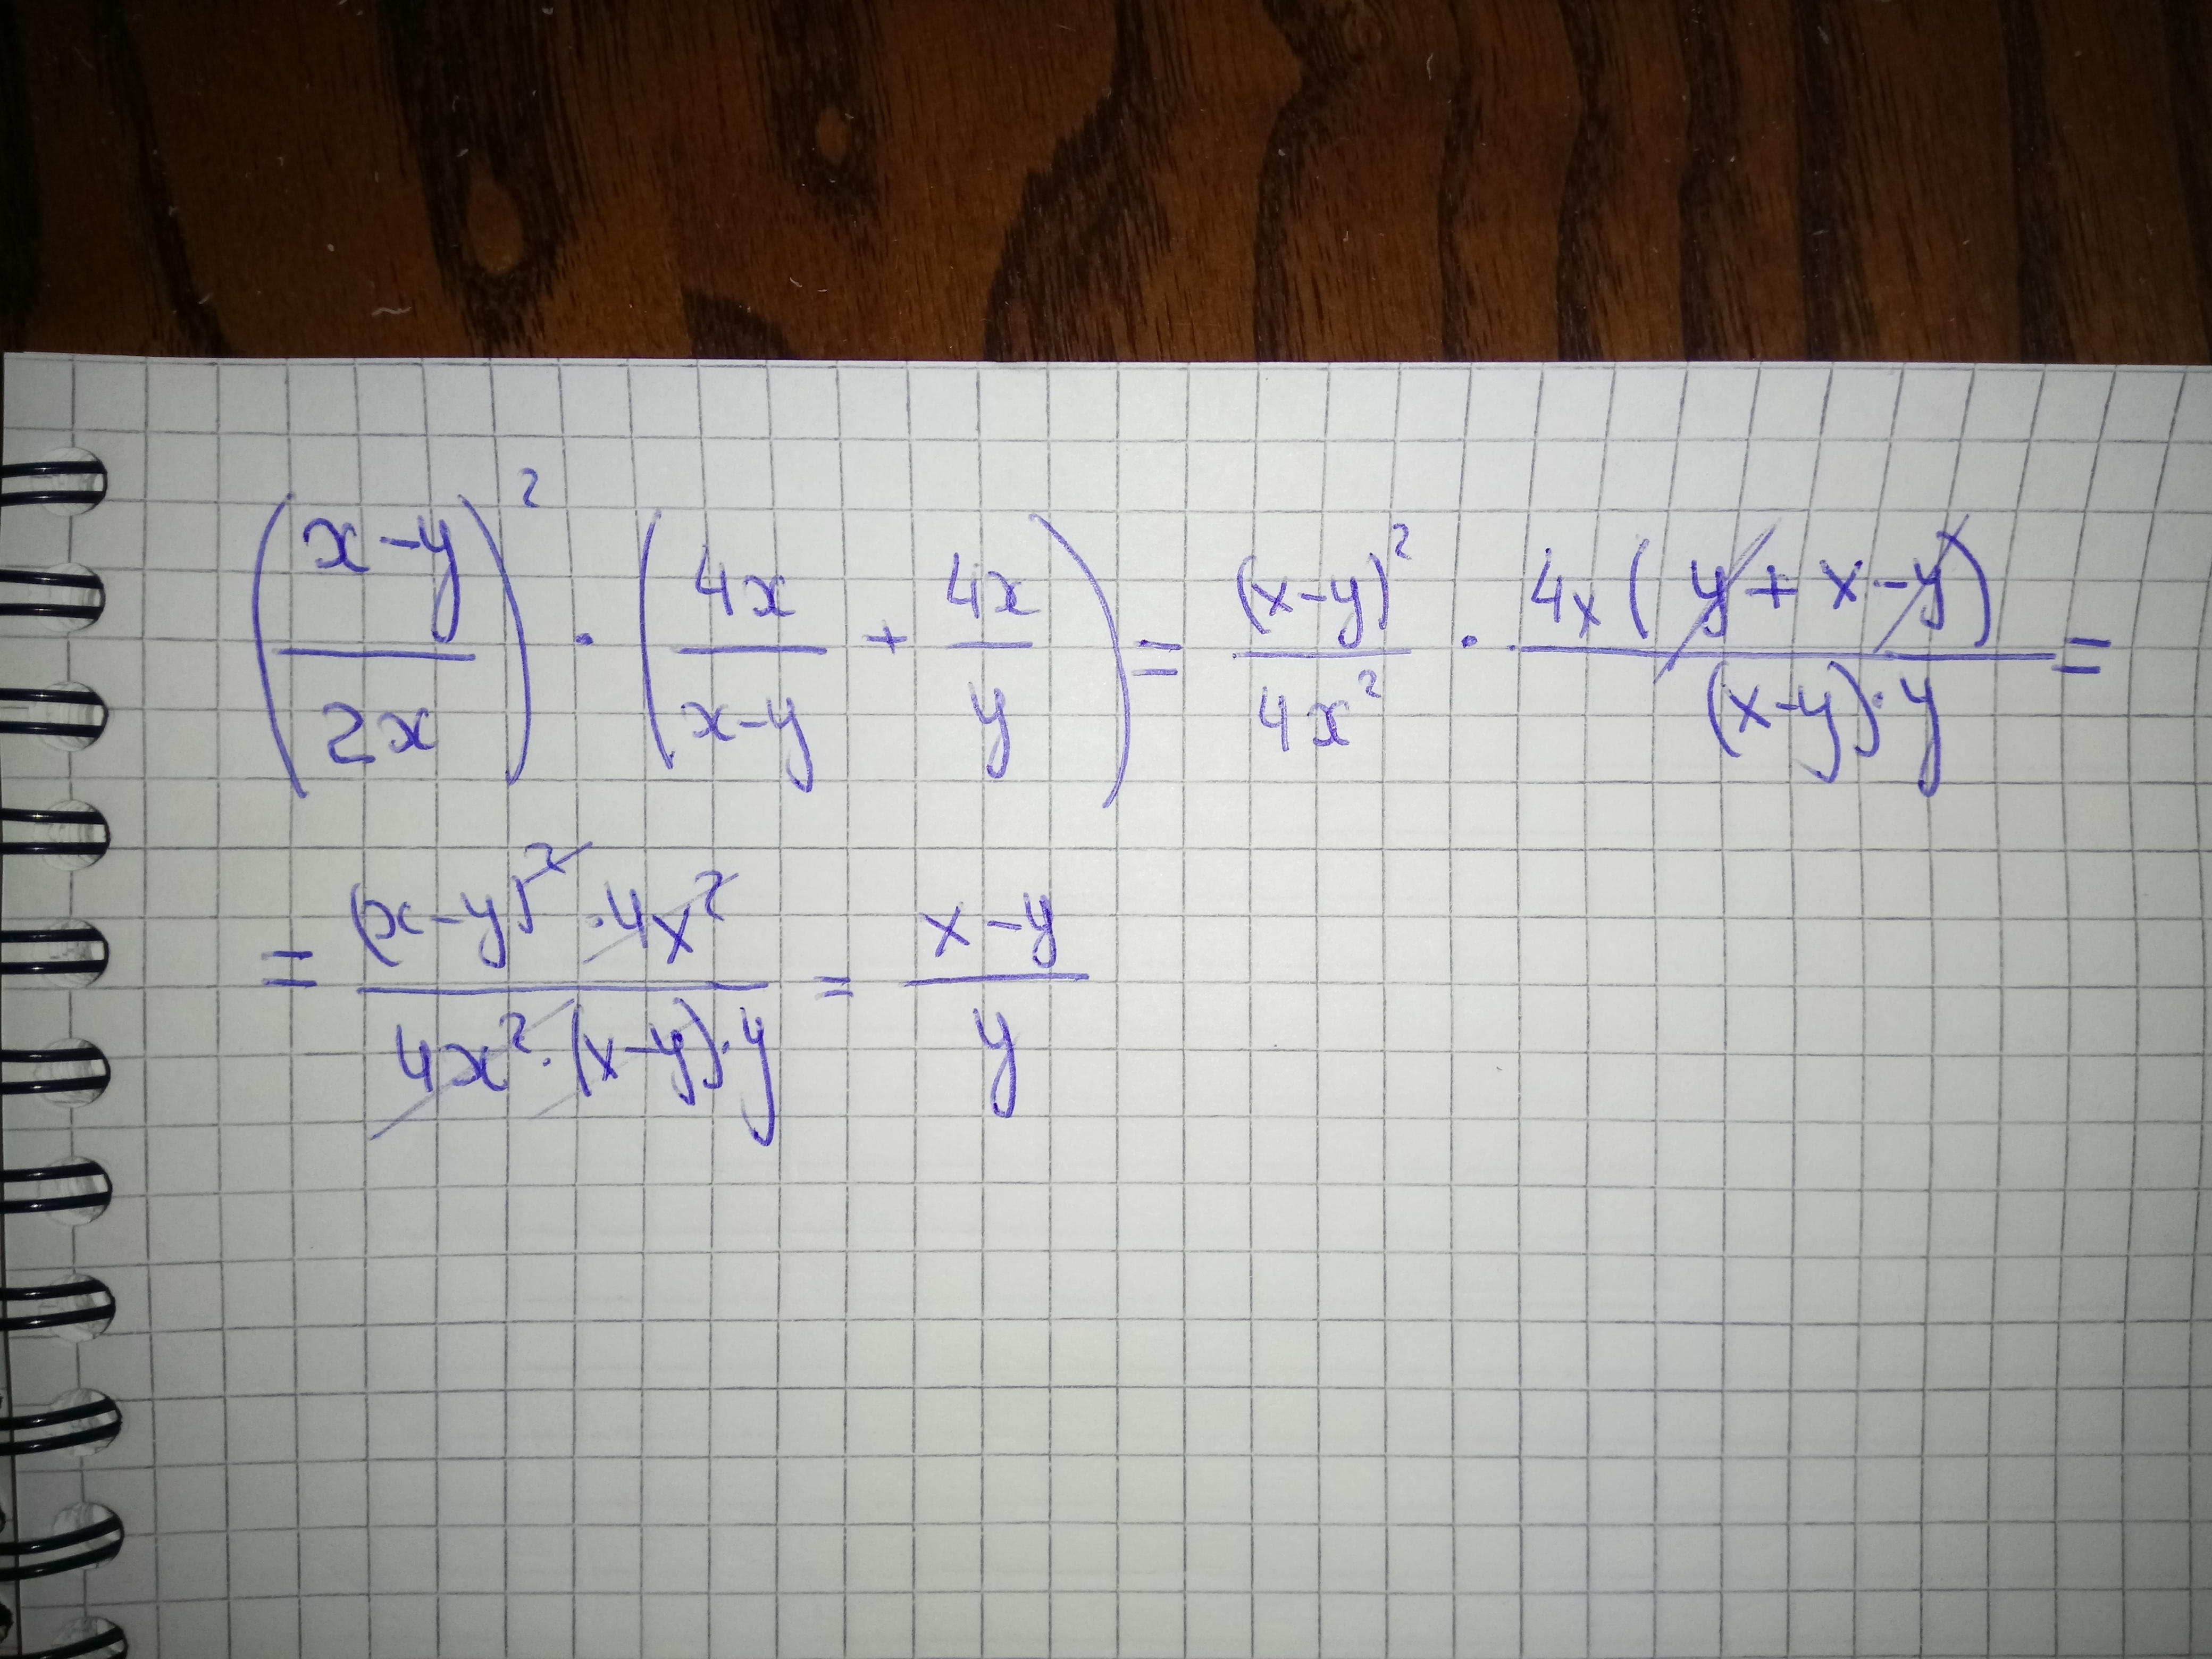 ((x-y)/(2x))² · (4x/(x-y) + 4x/y) = (x-y)²/(4x²) · 4x(y+x-y)/((x-y)·y) =
= ((x-y)²·4x²)/(4x²·(x-y)·y) = (x-y)/y